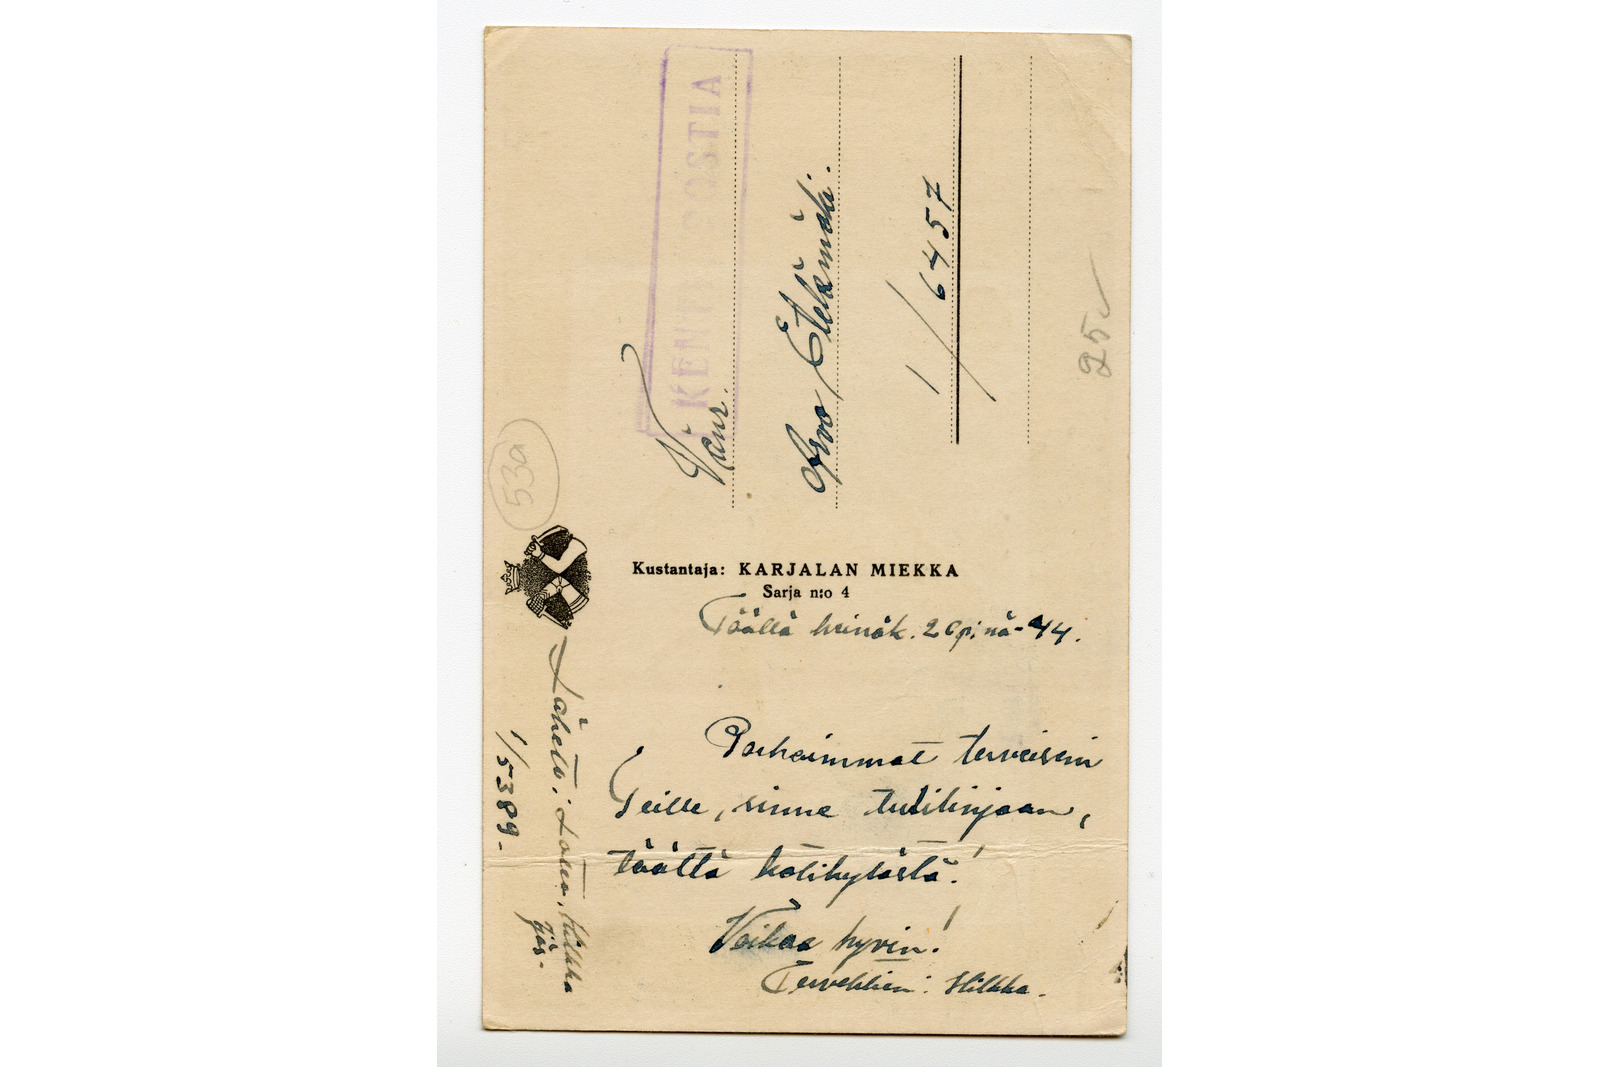 KENTTÄPOSTIA
Vänr.
Arvo Etelämäki.
1/6457
25
53a
Kustantaja: KARJALAN MIEKKA
Sarja n:o 4
Täällä heinäk. 20 p:nä -44.
Parhaimmat terveisein
Teille, sinne tulilinjaan,
täältä kotikylästä!
Voikaa hyvin!
Tervehtien: Hilkka.
Lähetti: Lotta, Hilkka
1/5389-